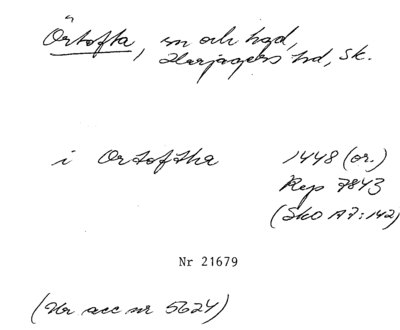 Örtofta, sn och hgd,
Harjagers hd, Sk.
i Ortoftha 1448 (or.)
Rep 7843
(SkO A7:142)
Nr 21679
(Ur acc nr 5624)